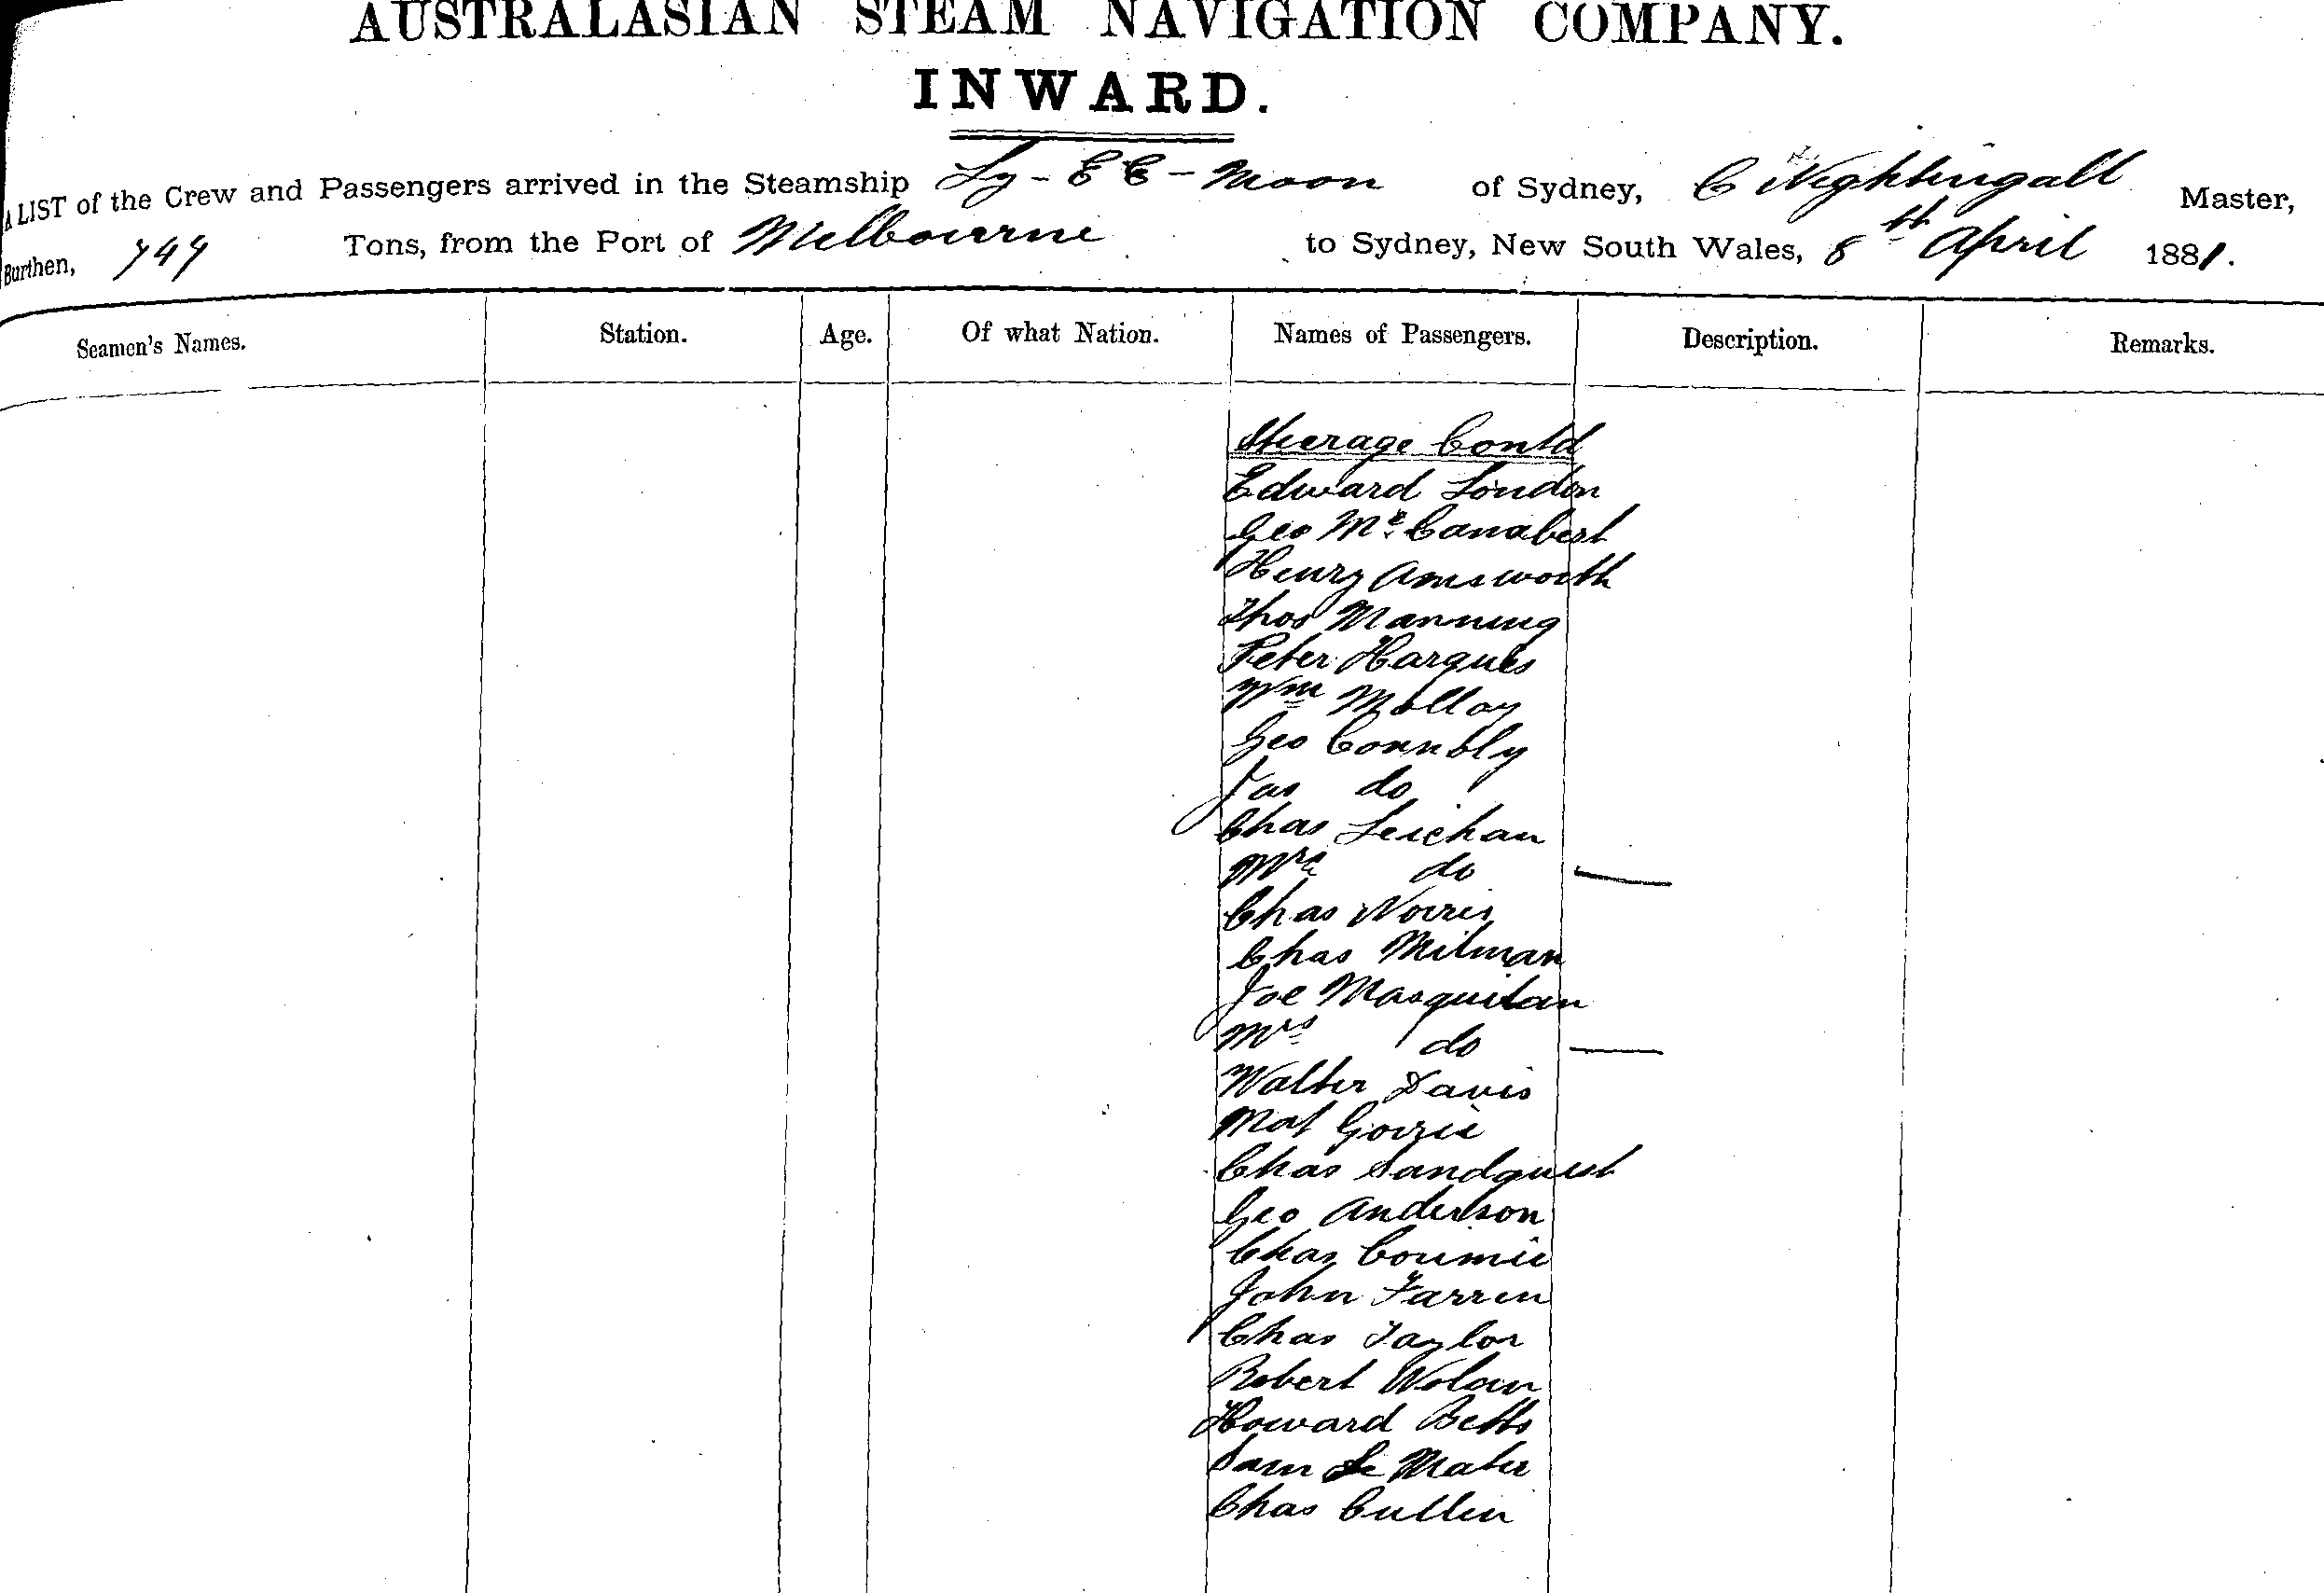 AUSTRALASIAN STEAM NAVIGATION COMPANY.
INWARD.
A LIST of the Crew and Passengers arrived in the Steamship Ly-EE-Moon of Sydney, C Nightingall Master,
Burthen, 749 Tons, from the Port of Melbourne to Sydney, New South Wales, 8th April 1881.
Seamen's Names. Station. Age. Of what Nation. Names of Passengers. Description. Remarks.
Steerage Contd
Edward London
Geo Mc
Henry
Thos Manning
Peter Hargues
Wm Molloy
Geo Connoly
Jas do
Chas Leichan
Mrs do
Chas Norris
Chas Milman
Joe Masquitan
Mrs do
Walter Davis
Mat Gorrie
Chas Sandquist
Geo Anderson
Chas
John Farren
Chas Taylor
Robert
Howard Betts
Sam Le
Chas Cullin